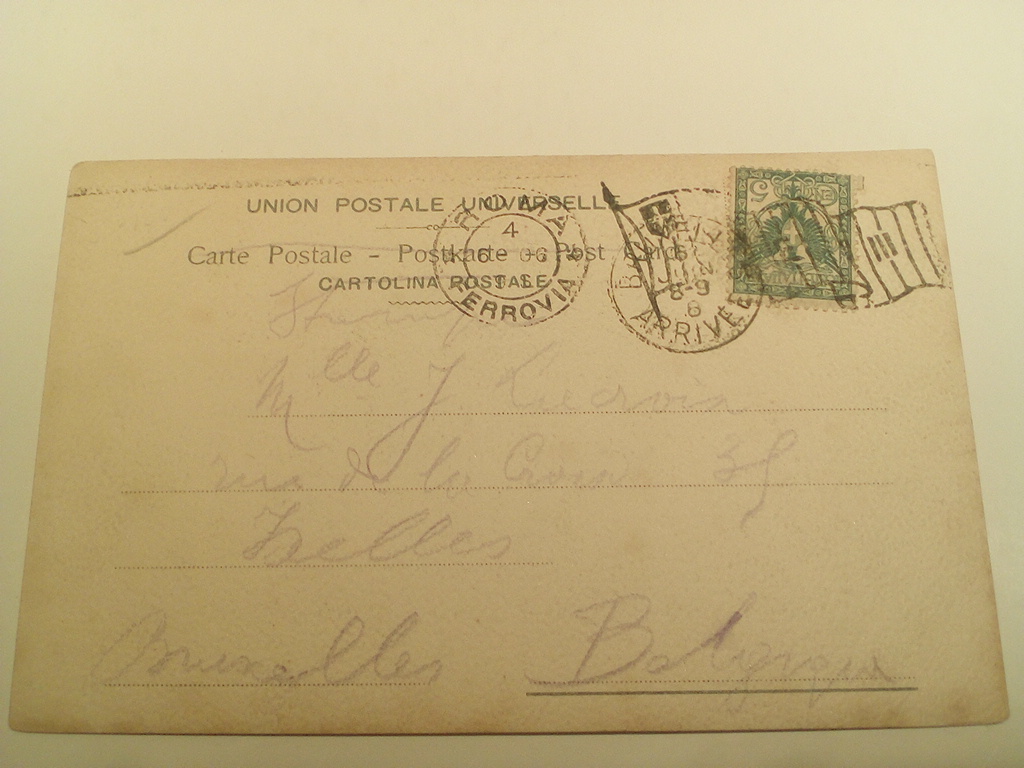 UNION POSTALE UNIVERSELLE
Carte Postale - Postkarte - Post Card
CARTOLINA POSTALE
ROMA
4
6 06
FERROVIA
8-9
6
ARRIVEE
5
Mlle J.
de la Croix 35
Ixelles
Bruxelles Belgique